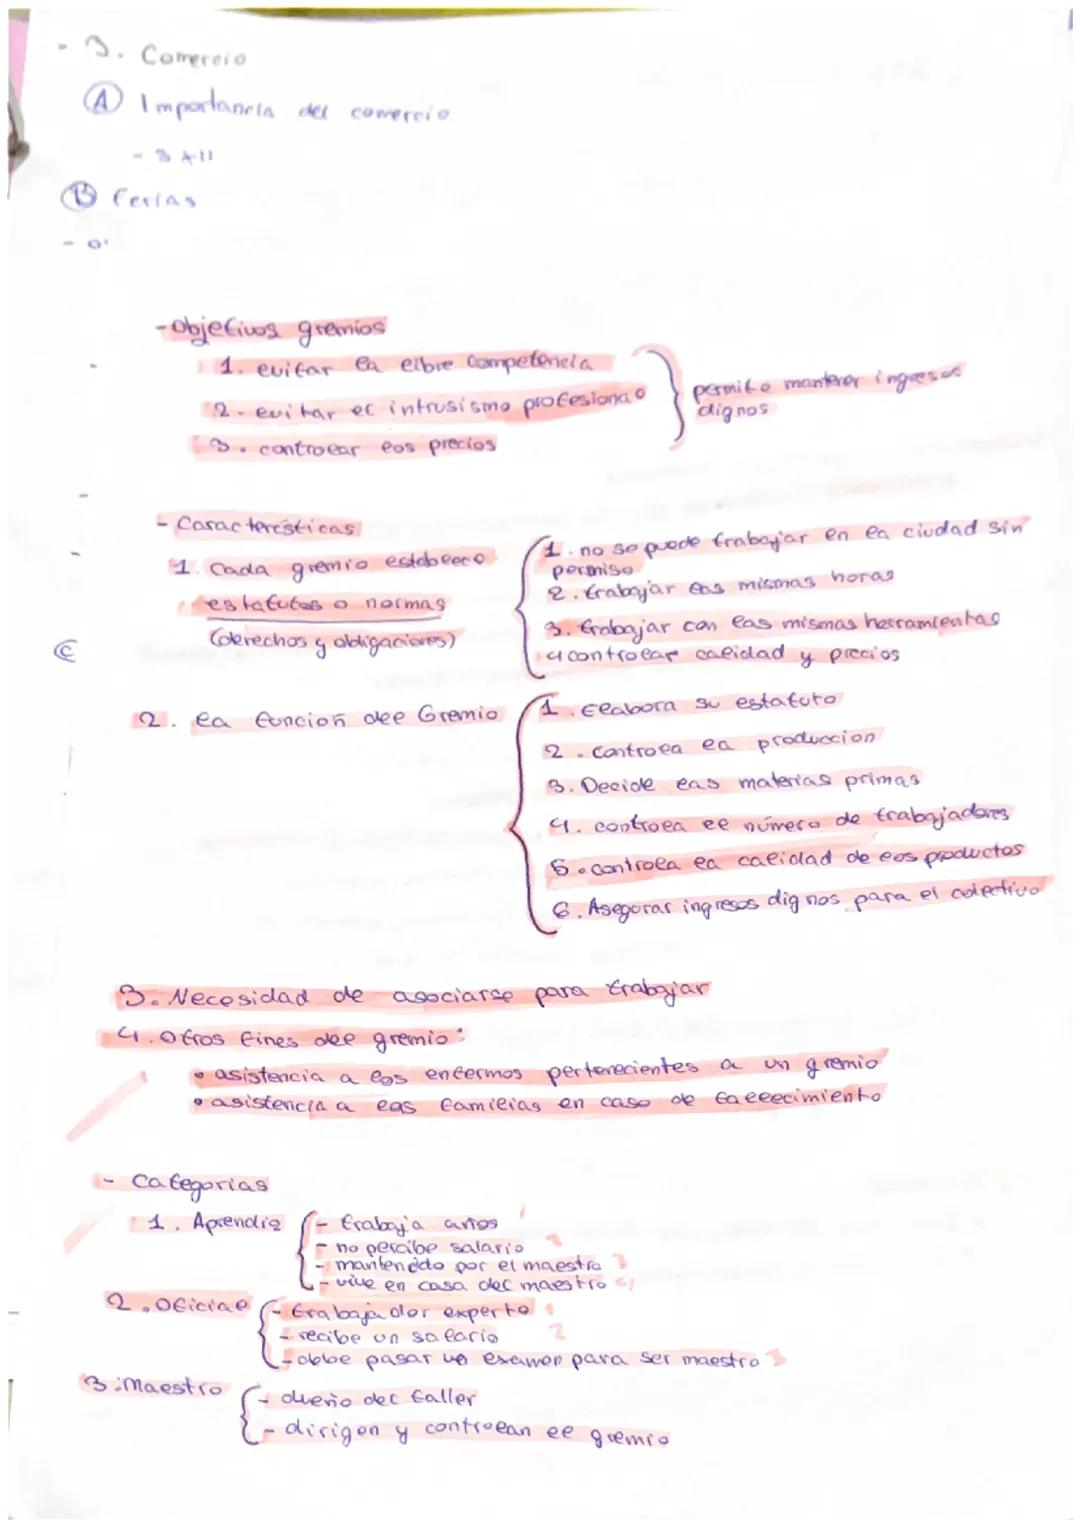 - 3. Comercio
A Importancia del comercio
B Ferias
- Objetivos gremios
1. evitar la libre competencia
2. evitar el intrusismo profesional
3. controlar los precios
permite mantener ingresos
dignos
- Características
1. Cada gremio establece
estatutos o normas
(derechos y obligaciones)
1. no se puede trabajar en la ciudad sin
permiso
2. trabajar las mismas horas
3. trabajar con las mismas herramientas
4 controlar calidad y precios
C
2. la función del Gremio
1. Elabora su estatuto
2. Controla la produccion
3. Decide las materias primas
4. controla el número de trabajadores
5. controla la calidad de los productos
6. Asegurar ingresos dignos para el colectivo
3. Necesidad de asociarse para trabajar
4. Otros fines del gremio:
• asistencia a los enfermos pertenecientes a un gremio
• asistencia a las familias en caso de fallecimiento
- Categorias
1. Aprendiz
- trabaja años
- no percibe salario
- mantenido por el maestro 3
- vive en casa del maestro 4
2. Oficial
- trabajador experto 1
- recibe un salario 2
- debe pasar un examen para ser maestro 3
3. Maestro
- dueño del taller
- dirigen y controlan el gremio